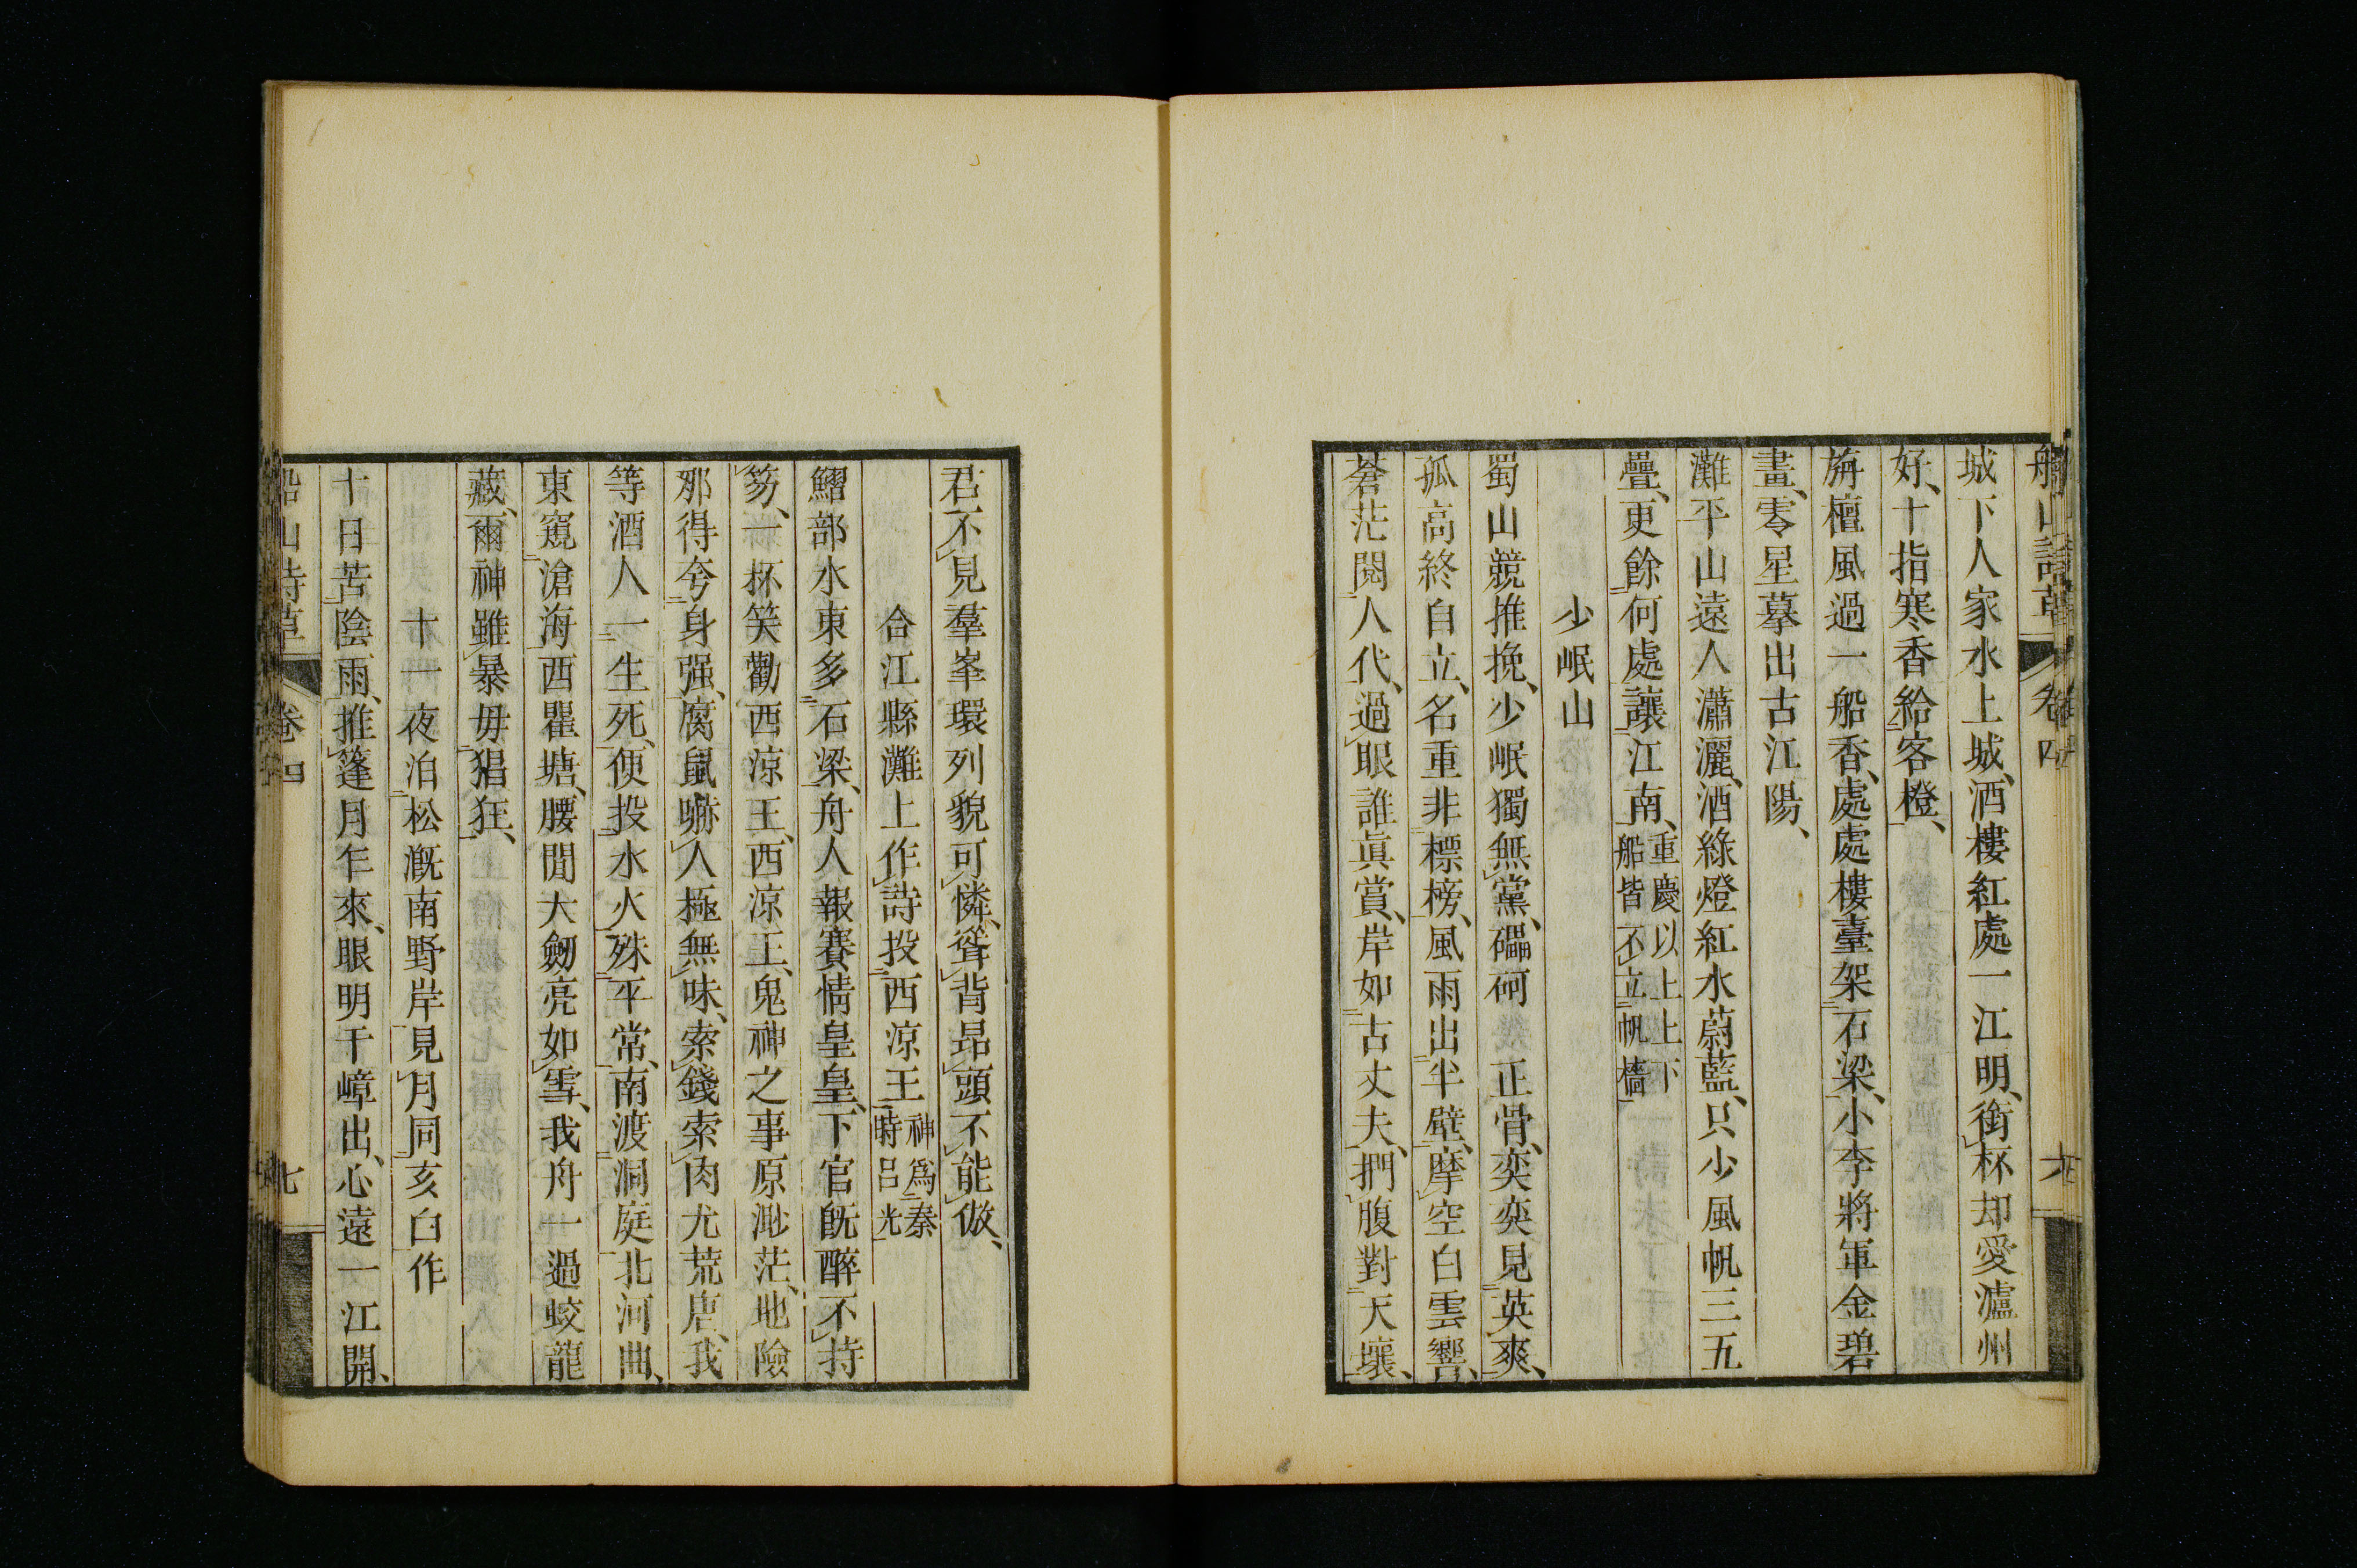 船山詩草 卷四 六
城下人家水上城、酒樓紅處一江明、銜杯却愛瀘州
好、十指寒香給客橙、
旃檀風過一船香、處處樓臺架石梁、小李將軍金碧
畫、零星摹出古江陽、
灘平山遠人瀟灑、酒綠燈紅水蔚藍、只少風帆三五
疊、更餘何處讓江南、重慶以上上下
船皆不立帆檣
少岷山
蜀山競推挽、少岷獨無黨、礧砢正骨、奕奕見英爽、
孤高終自立、名重非標榜、風雨出半壁、摩空白雲響、
蒼茫閱人代、過眼誰眞賞、岸如古丈夫、捫腹對天壤、
君不見羣峯環列貌可憐、聳背昂頭不能傲、
合江縣灘上作詩投西涼王神爲秦
時呂光
鰼部水東多石梁、舟人報賽情皇皇、下官旣醉不持
笏、一杯笑勸西涼王、西涼王、鬼神之事原渺茫、地險
那得夸身强、腐鼠嚇人極無味、索錢索肉尤荒唐、我
等酒人一生死、便投水火殊平常、南渡洞庭北河曲、
東窺滄海西瞿塘、腰間大劒亮如雪、我舟一過蛟龍
藏、爾神雖暴毋猖狂、
十一夜泊松溉南野岸見月同亥白作
十日苦陰雨、推篷月乍來、眼明千嶂出、心遠一江開、
船山詩草 卷四 七